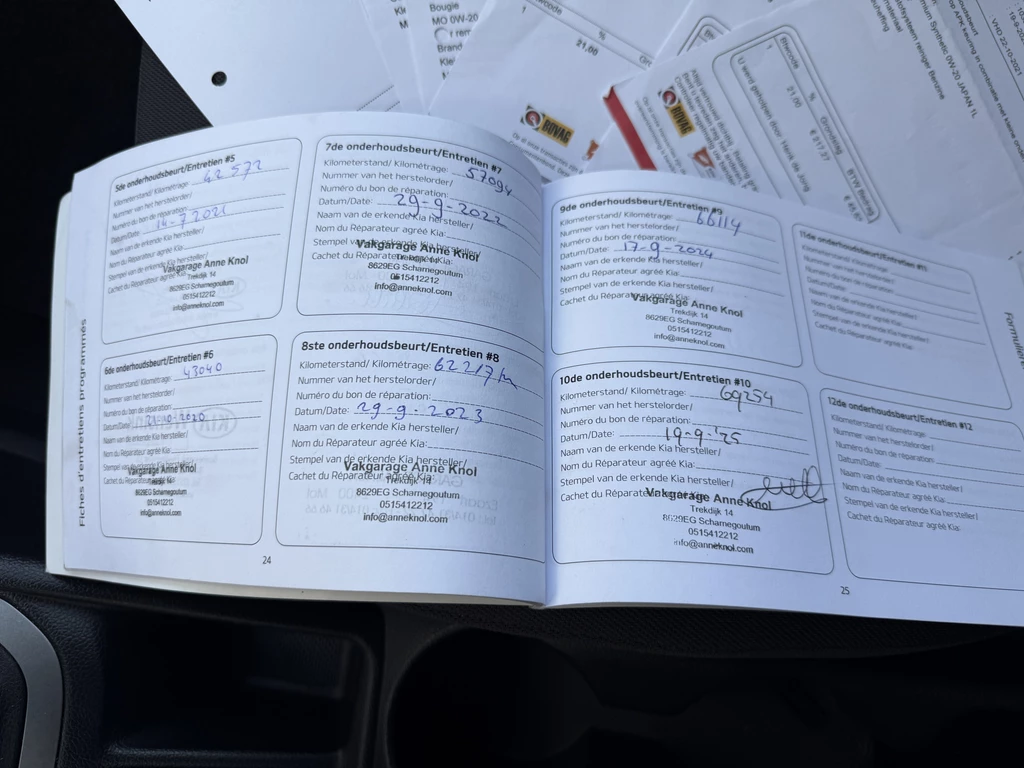 Bougie
MO 0W-20
Brand
%
21,00
BOVAG
BOVAG
Btwcode
%
Grondslag
BTW Bedrag
1
21,00
U werd geholpen door: Henk de Jong
VHD 22-10-2021
Premium Synthetic 0W-20 JAPAN 1L
Fiches d'entretiens programmés
5de onderhoudsbeurt/Entretien #5
Kilometerstand/ Kilométrage:
Nummer van het herstelorder/
Numéro du bon de réparation:
Datum/Date: 14-7-2021
Naam van de erkende Kia hersteller/
Nom du Réparateur agréé Kia:
Stempel van de erkende Kia hersteller/
Cachet du Réparateur agréé Kia:
Vakgarage Anne Knol
Trekdijk 14
8629EG Scharnegoutum
0515412212
info@anneknol.com
6de onderhoudsbeurt/Entretien #6
Kilometerstand/ Kilométrage: 43040
Nummer van het herstelorder/
Numéro du bon de réparation:
Datum/Date:
Naam van de erkende Kia hersteller/
Nom du Réparateur agréé Kia:
Stempel van de erkende Kia hersteller/
Cachet du Réparateur agréé Kia:
Vakgarage Anne Knol
Trekdijk 14
8629EG Scharnegoutum
0515412212
info@anneknol.com
7de onderhoudsbeurt/Entretien #7
Kilometerstand/ Kilométrage: 57094
Nummer van het herstelorder/
Numéro du bon de réparation:
Datum/Date: 29-9-2022
Naam van de erkende Kia hersteller/
Nom du Réparateur agréé Kia:
Stempel van de erkende Kia hersteller/
Cachet du Réparateur agréé Kia:
Vakgarage Anne Knol
Trekdijk 14
8629EG Scharnegoutum
0515412212
info@anneknol.com
8ste onderhoudsbeurt/Entretien #8
Kilometerstand/ Kilométrage: 62217 km
Nummer van het herstelorder/
Numéro du bon de réparation:
Datum/Date: 29-9-2023
Naam van de erkende Kia hersteller/
Nom du Réparateur agréé Kia:
Stempel van de erkende Kia hersteller/
Cachet du Réparateur agréé Kia:
Vakgarage Anne Knol
Trekdijk 14
8629EG Scharnegoutum
0515412212
info@anneknol.com
24
9de onderhoudsbeurt/Entretien #9
Kilometerstand/ Kilométrage: 66114
Nummer van het herstelorder/
Numéro du bon de réparation:
Datum/Date: 17-9-2024
Naam van de erkende Kia hersteller/
Nom du Réparateur agréé Kia:
Stempel van de erkende Kia hersteller/
Cachet du Réparateur agréé Kia:
Vakgarage Anne Knol
Trekdijk 14
8629EG Scharnegoutum
0515412212
info@anneknol.com
10de onderhoudsbeurt/Entretien #10
Kilometerstand/ Kilométrage: 69254
Nummer van het herstelorder/
Numéro du bon de réparation:
Datum/Date: 19-9-'25
Naam van de erkende Kia hersteller/
Nom du Réparateur agréé Kia:
Stempel van de erkende Kia hersteller/
Cachet du Réparateur agréé Kia:
Vakgarage Anne Knol
Trekdijk 14
8629EG Scharnegoutum
0515412212
info@anneknol.com
11de onderhoudsbeurt/Entretien #11
Kilometerstand/ Kilométrage:
Nummer van het herstelorder/
Numéro du bon de réparation:
Datum/Date:
Naam van de erkende Kia hersteller/
Nom du Réparateur agréé Kia:
Stempel van de erkende Kia hersteller/
Cachet du Réparateur agréé Kia:
12de onderhoudsbeurt/Entretien #12
Kilometerstand/ Kilométrage:
Nummer van het herstelorder/
Numéro du bon de réparation:
Datum/Date:
Naam van de erkende Kia hersteller/
Nom du Réparateur agréé Kia:
Stempel van de erkende Kia hersteller/
Cachet du Réparateur agréé Kia:
25